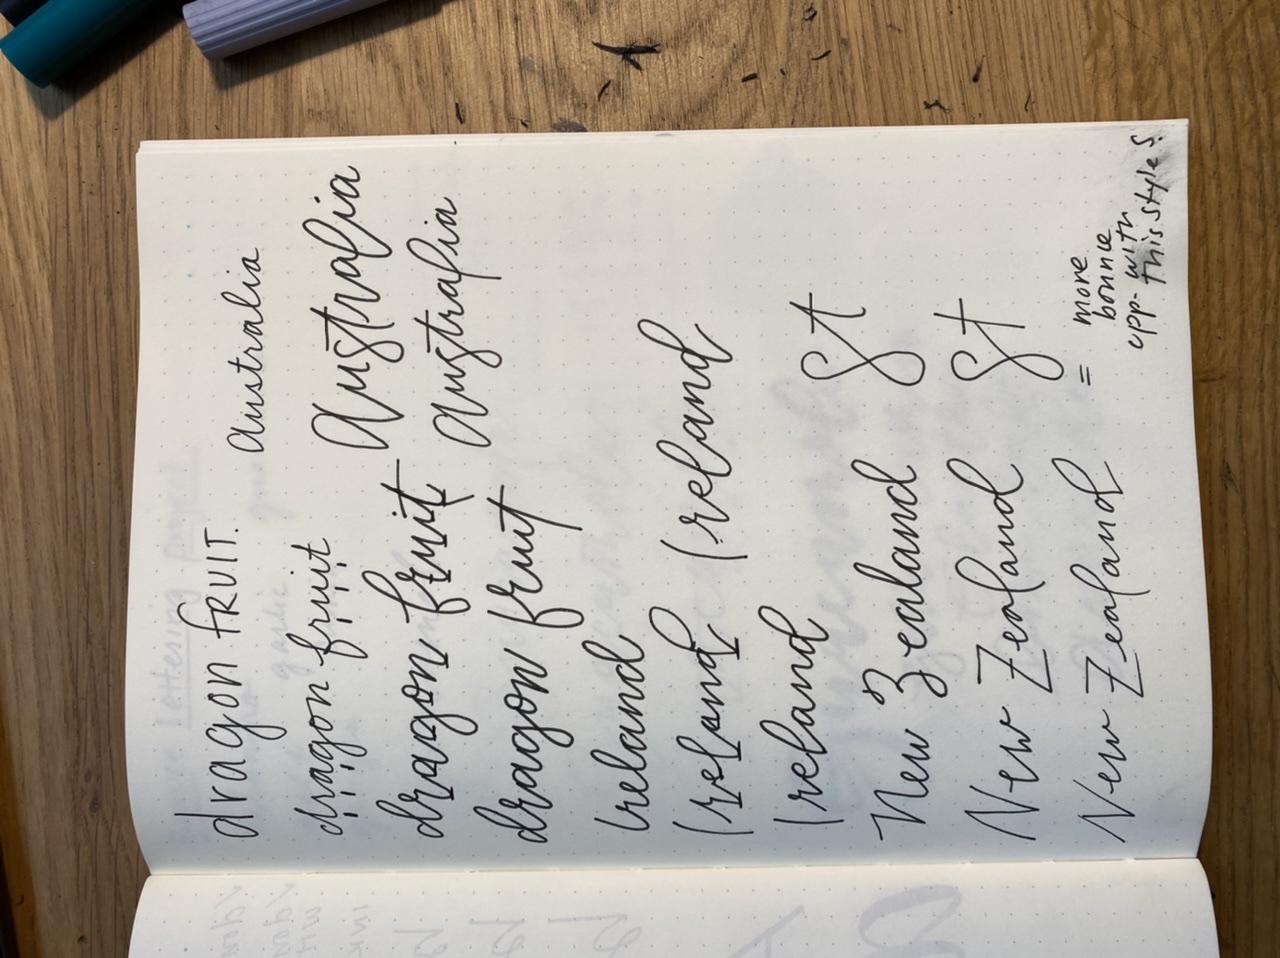 dragon FRUIT
australia
dragon fruit
Australia
dragon fruit
australia
dragon fruit
Ireland
Ireland
Ireland
Ireland
New Zealand
St
New Zealand
St
New Zealand
= more
bounce
opp. with
this style?